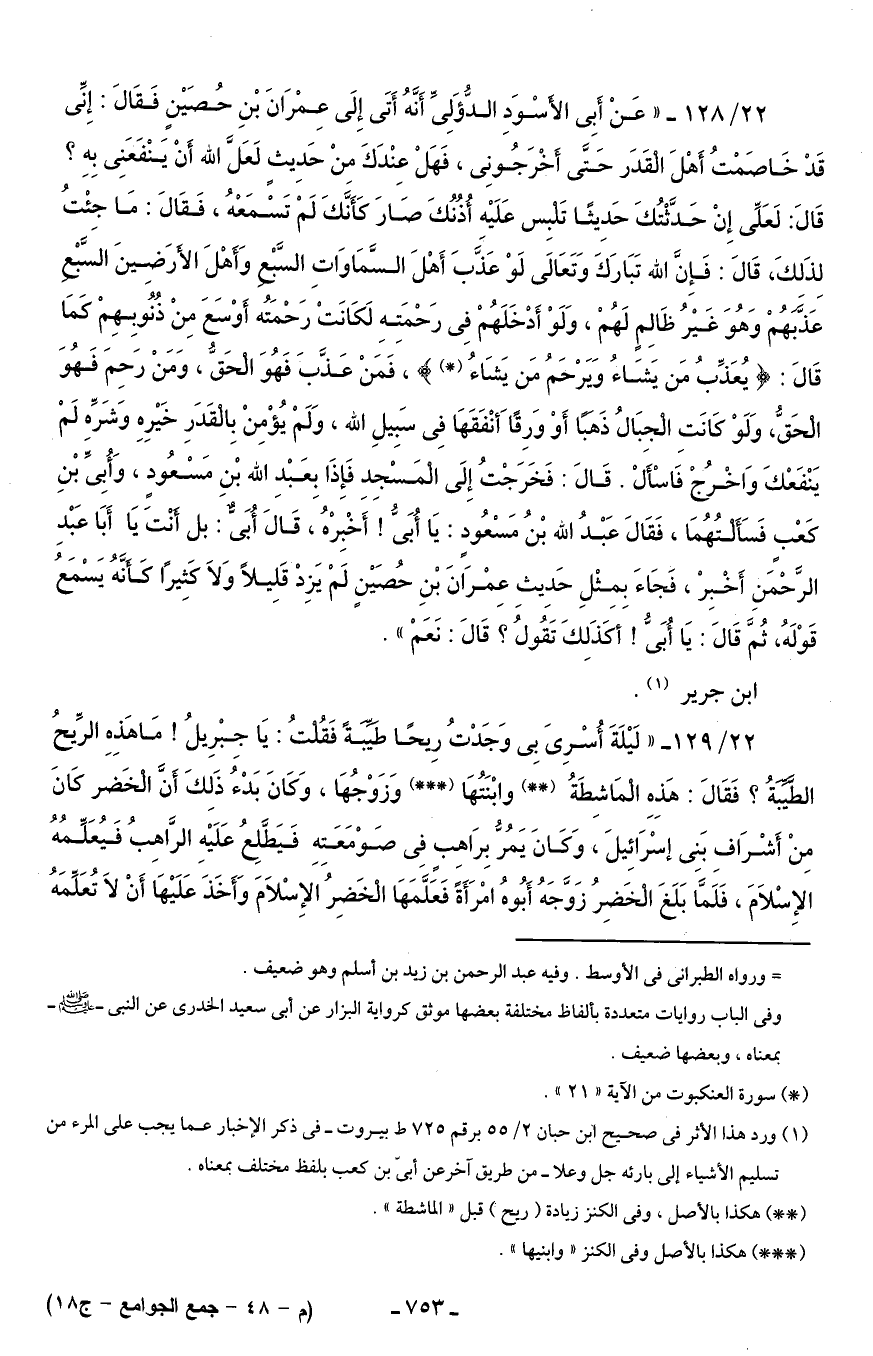 ٢٢/ ١٢٨ ـ « عَـنْ أَبِى الأَسْـوَدِ الـدُّؤَلِىِّ أَنَّهُ أَتَى إِلَى عِـمْرَانَ بْنِ حُـصَيْنٍ فَـقَالَ : إِنِّى
قَدْ خَـاصَمْتُ أَهْلَ الْقَدَرِ حَـتَّى أَخْرَجُـونِى ، فَهَلْ عِنْدَكَ مِنْ حَدِيثٍ لَعَلَّ الله أَنْ يَـنْفَعَنِى بِهِ ؟
قَالَ: لَعَلِّى إِنْ حَـدَّثْتُكَ حَدِيثًـا تَلْبِس عَلَيْهِ أُذُنُكَ صَـارَ كَأَنَّكَ لَمْ تَسْـمَعْهُ ، فَـقَالَ : مَـا جِئْتُ
لِذَلِكَ، قَالَ : فَـإِنَّ الله تَبَارَكَ وَتَعَالَى لَوْ عَذَّبَ أَهْلَ الـسَّمَاوَاتِ السَّبْعِ وَأَهْلَ الأَرَضِـينَ السَّبْعِ
عَذَّبَهُمْ وَهُوَ غَـيْرُ ظَالِمٍ لَهُمْ ، وَلَوْ أَدْخَلَهُمْ فِى رَحْمَتِـهِ لَكَانَتْ رَحْمَتُه أَوْسَعَ مِنْ ذُنُوبِـهِمْ كَمَا
قَالَ : ﴿ يُعَذِّبُ مَن يَشَـاءُ وَيَرْحَمُ مَن يَشَاءُ (*) ﴾ ، فَمَنْ عَـذَّبَ فَهُوَ الْحَقُّ ، وَمَنْ رَحِمَ فَـهُوَ
الْحَقُّ، وَلَوْ كَانَتِ الْجِبَالُ ذَهَبًا أَوْ وَرِقًا أَنْفَقَهَا فِى سَبِيلِ الله ، وَلَمْ يُؤْمِنْ بِالْقَدَرِ خَيْرِهِ وَشَرِّهِ لَمْ
يَنْفَعْكَ وَاخْـرُجْ فَاسْأَلْ . قَـالَ : فَخَرَجْتُ إِلَى الْمَسْـجِدِ فَإِذَا بِعَـبْدِ الله بْنِ مَسْـعُودٍ ، وَأُبىِّ بْنِ
كَعْبٍ فَسَأَلْـتُهُمَا ، فَقَالَ عَبْـدُ الله بْنُ مَسْعُودٍ : يَا أُبَىُّ ! أَخْبِرْهُ ، قَـالَ أُبَىٌّ : بل أَنْتَ يَا أَبَا عَبْدِ
الرَّحْمَنِ أَخْـبِرْ ، فَجَاءَ بِمِـثْلِ حَدِيثِ عِمْـرَانَ بْنِ حُصَيْنٍ لَمْ يَزِدْ قَلِيـلاً وَلاَ كَثِيرًا كَـأَنَّهُ يَسْمَعُ
قَوْلَهُ، ثُمَّ قَالَ : يَا أُبَىُّ ! أكَذَلِكَ تَقُولُ ؟ قَالَ : نَعَمْ » .
ابن جرير (١) .
٢٢/ ١٢٩ـ « لَيْلَةَ أُسْـرِىَ بِى وَجَدْتُ رِيحًـا طَيِّبَـةً فَقُلْتُ : يَا جِـبْرِيلُ ! مَـاهَذِهِ الرِّيحُ
الطَّيِّبَةُ ؟ فَقَالَ : هَذِهِ الْمَاشِطَةُ (**) وابْنَتُهَا (***) وَزَوْجُهَا ، وَكَانَ بَدْءُ ذَلِكَ أَنَّ الْخَضِرَ كَانَ
مِنْ أَشْـرَافِ بَنِى إِسْرَائِيلَ ، وَكَـانَ يَمُرُّ بِرَاهِبٍ فِى صَـوْمَعَتِهِ فَـيَطَّلِعُ عَلَيْهِ الرَّاهِبُ فَـيُعَلِّـمُهُ
الإِسْلاَمَ ، فَلَمَّا بَلَغَ الْخَضِرُ زَوَّجَهُ أَبُوهُ امْرَأَةً فَعَلَّمَهَا الْخَضِرُ الإِسْلاَمَ وَأَخَذَ عَلَيْهَا أَنْ لاَ تُعَلِّمَهُ
= ورواه الطبرانى فى الأوسط . وفيه عبد الرحمن بن زيد بن أسلم وهو ضعيف .
وفى الباب روايات متعددة بألفاظ مختلفة بعضها موثق كرواية البزار عن أبى سعيد الخدرى عن النبى ـ ﷺ ـ
بمعناه ، وبعضها ضعيف .
(*) سورة العنكبوت من الآية « ٢١ » .
(١) ورد هذا الأثر فى صحيح ابن حبان ٢/ ٥٥ برقم ٧٢٥ ط بيـروت ـ فى ذكر الإخبار عـما يجب على المرء من
تسليم الأشياء إلى بارئه جل وعلا ـ من طريق آخر عن أبىّ بن كعب بلفظ مختلف بمعناه .
(**) هكذا بالأصل ، وفى الكنز زيادة ( ريح ) قبل « الماشطة » .
(***) هكذا بالأصل وفى الكنز « وابنيها » .
ـ ٧٥٣ ـ
(م - ٤٨ - جمع الجوامع - ج١٨)